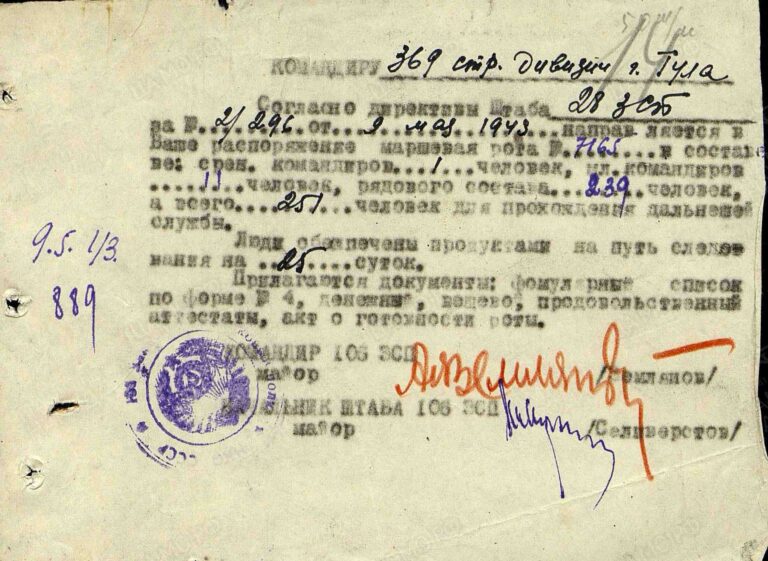 КОМАНДИРУ 369 стр. дивизии г. Тула
Согласно директивы Штаба 28 ЗСТ
за №..2/296.от...9 мая 1943...направляется в
Ваше распоряжение маршевая рота №.7165...в составе
ве: сред. командиров...1...человек, мл.командиров
.....11..человек, рядового состава...239.человек,
а всего....251...человек для прохождения дальнейшей
службы.
Люди обеспечены продуктами на путь следо
вания на ..25....суток.
Прилагаются документы: фомулярный список
по форме № 4, денежный, вещево, продовольственный
аттестаты, акт о готовности роты.
9.5. 1/3.
889
КОМАНДИР 106 ЗСП
майор /Землянов/
НАЧАЛЬНИК ШТАБА 106 ЗСП
майор /Селиверстов/
СССР